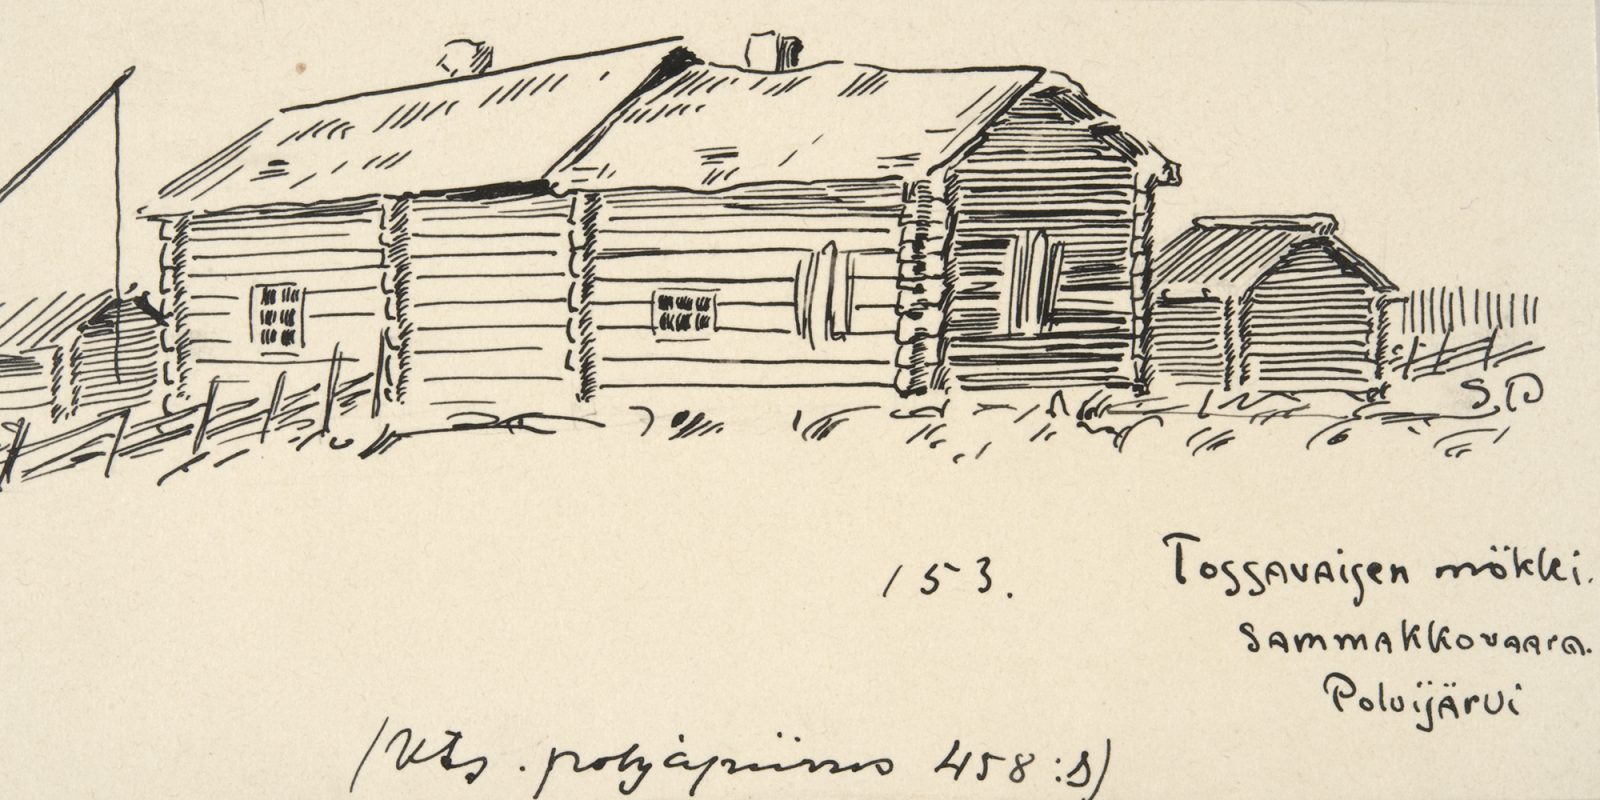 S P
153.
Tossavaisen mökki.
Sammakkovaara.
Polvijärvi
(Kts. pohjapiirros 458: